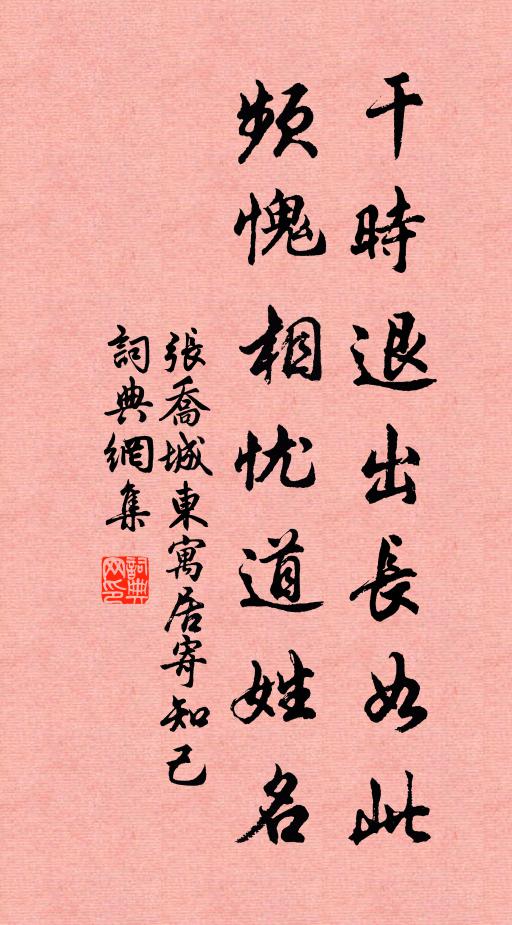 干時退出長如此
頻愧相忧道姓名
張喬城東寓居寄知己
詞典網集
詞典网印